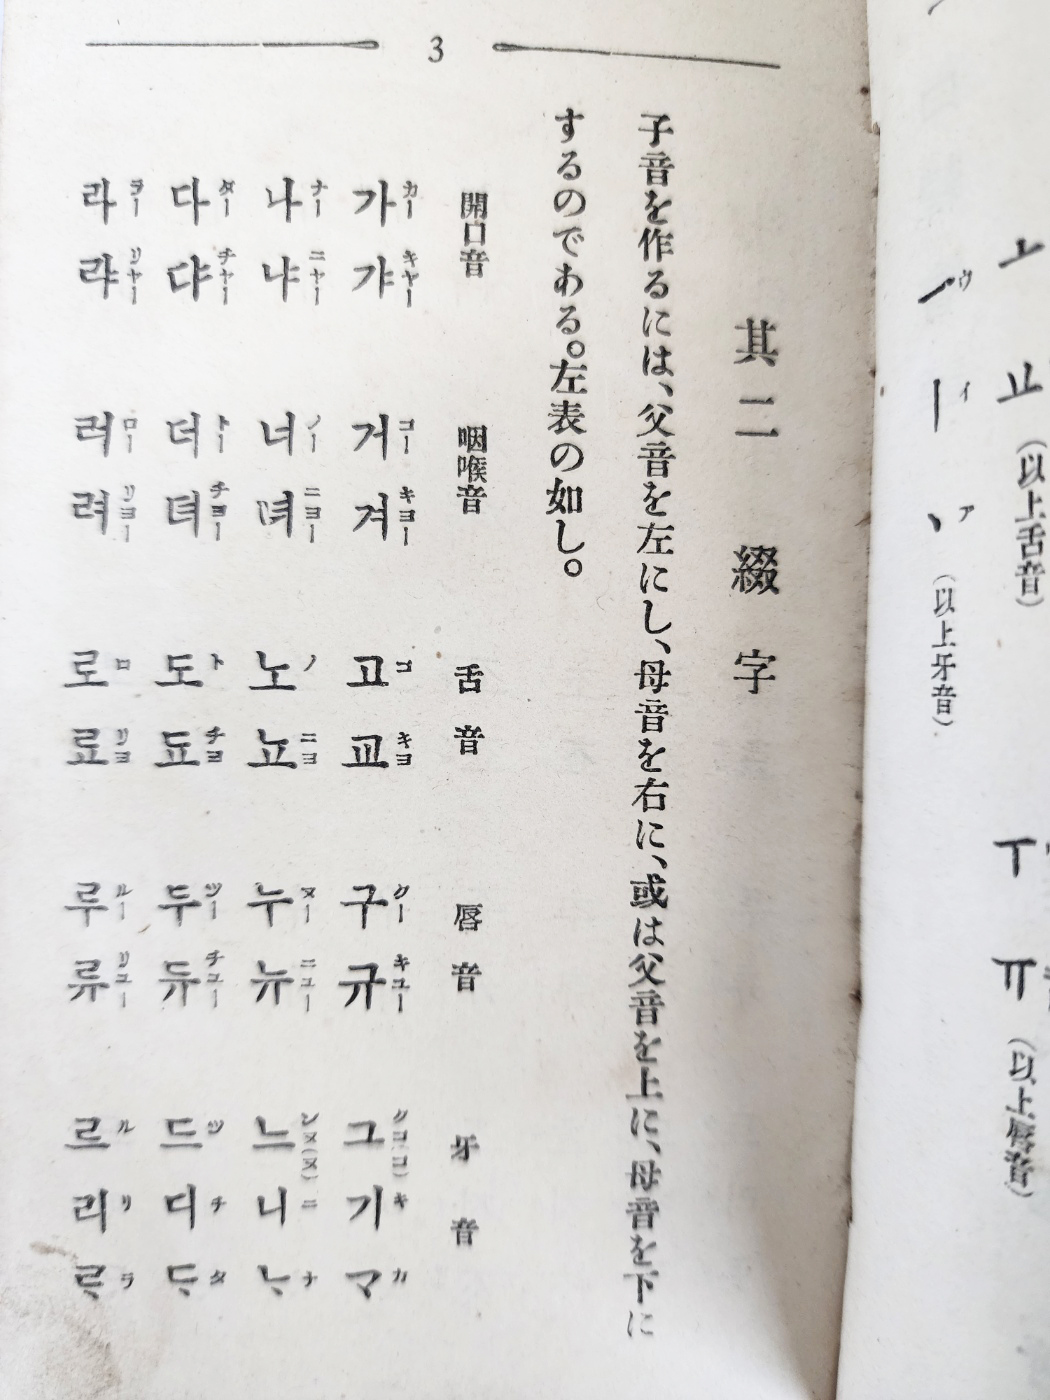 ㅗ ㅛ (以上舌音) ㅜ ㅠ (以上唇音)
ウ イ ア
ㅡ ㅣ ㆍ (以上牙音)
3
其二 綴字
子音を作るには、父音を左にし、母音を右に、或は父音を上に、母音を下に
するのである。左表の如し。
開口音 咽喉音 舌音 唇音 牙音
カー キヤー コー キヨー コ キヨ クー キユー クコ(コ) キ カ
가 갸 거 겨 고 교 구 규 그 기 ᄀᆞ
ナー ニヤー ノー ニヨー ノ ニヨ ヌー ニユー ンヌ(ヌ) ニ ナ
나 냐 너 녀 노 뇨 누 뉴 느 니 ᄂᆞ
ター チヤー トー チヨー ト チヨ ツー チユー ツ チ タ
다 댜 더 뎌 도 됴 두 듀 드 디 ᄃᆞ
ラー リヤー ロー リヨー ロ リヨ ルー リユー ル リ ラ
라 랴 러 려 로 료 루 류 르 리 ᄅᆞ